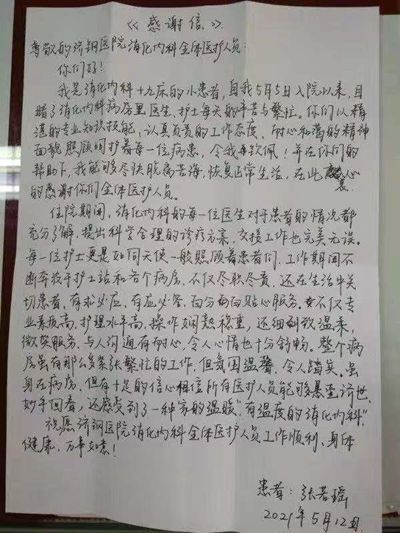 《感谢信》
尊敬的济钢医院消化内科全体医护人员:
你们好!
我是消化内科十九床的小患者,自我5月5日入院以来,目
睹了消化内科病房里医生、护士每天的辛苦与繁忙。你们以精
湛的专业知识技能,认真负责的工作态度、耐心和蔼的精神
面貌照顾问护着每一位病患,令我每次佩!并在你们的
帮助下,我能够尽快脱离苦海,恢复正常生活,在此衷心
的感谢你们全体医护人员。
住院期间,消化内科的每一位医生对于患者的情况都
充分了解,提出科学合理的诊疗方案,交接工作也完美无误。
每一位护士更是如同天使一般照顾着患者们,工作期间不
断奔放于护士站和各个病房,不仅尽职尽责,还在生活中关
切患者,有求必应,有应必答,百分百的贴心服务,不仅专
业素质高,护理水平高,操作娴熟稳重,还细致温柔,
微笑服务,与人沟通有耐心,令人心情也十分舒畅。整个病
房虽有那么多紧张繁忙的工作,但氛围温馨,令人踏实,虽
身在病房,但有十足的信心相信所有医护人员能够悬壶济世、
妙手回春,还感受到了一种家的温暖"有温度的消化内科"
祝愿济钢医院消化内科全体医护人员工作顺利、身体
健康、万事如意!
患者:张若瑶
2021年5月12日